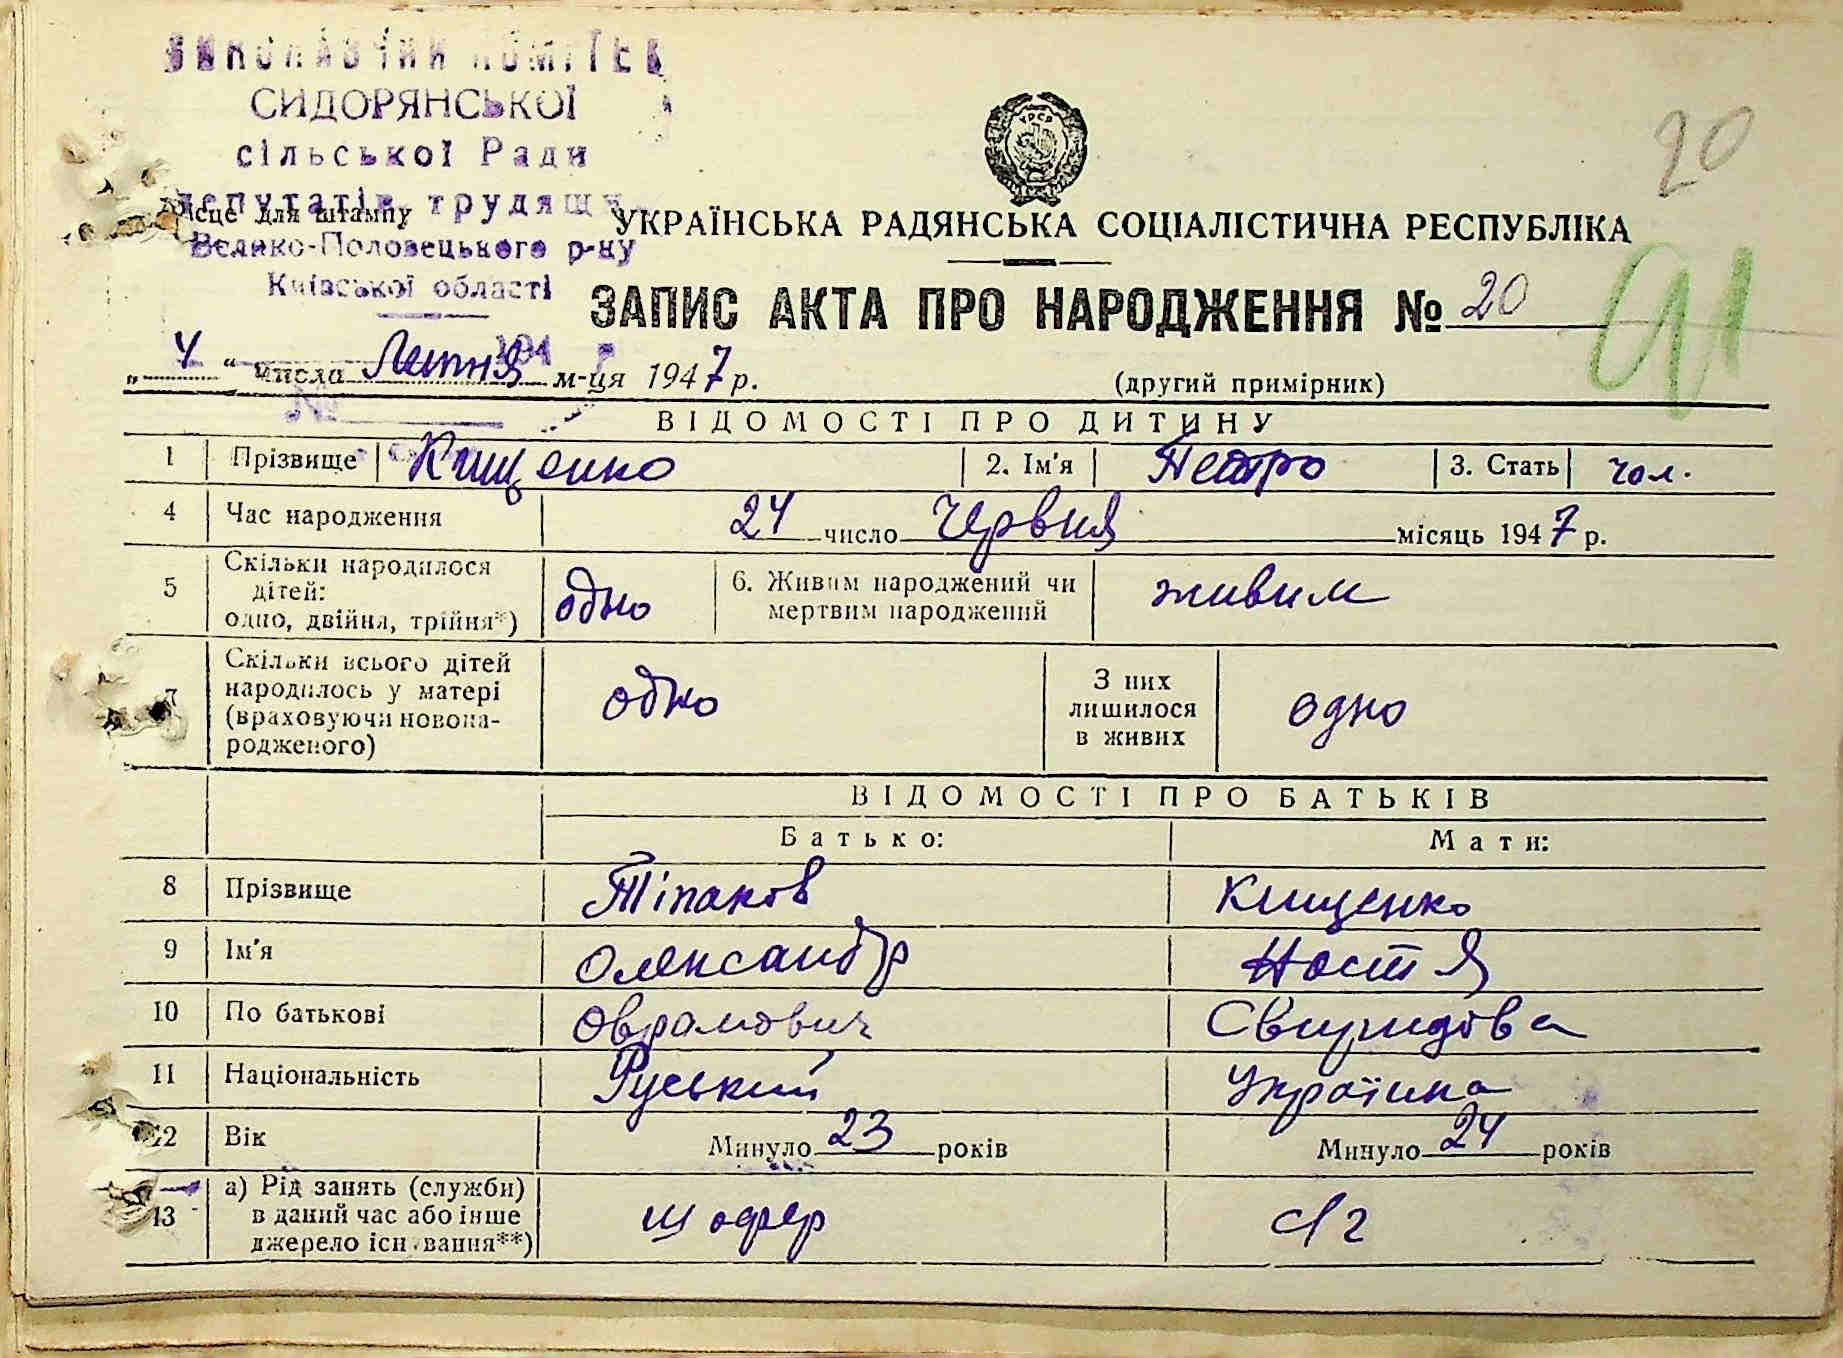 ВИКОНАВЧИЙ КОМІТЕТ
СИДОРЯНСЬКОЇ
сільської Ради
депутатів трудящих
Велико-Половецького р-ну
Київської області
194 р.
№
20
УРСР
Місце для штампу
УКРАЇНСЬКА РАДЯНСЬКА СОЦІАЛІСТИЧНА РЕСПУБЛІКА
ЗАПИС АКТА ПРО НАРОДЖЕННЯ № 20
91
„4“ числа Липня м-ця 1947 р.
(другий примірник)
ВІДОМОСТІ ПРО ДИТИНУ
1 Прізвище Кищенко 2. Ім'я Петро 3. Стать чол.
4 Час народження 24 число Червня місяць 1947 р.
5 Скільки народилося дітей: одно, двійня, трійня*) одно 6. Живим народжений чи мертвим народжений живим
7 Скільки всього дітей народилось у матері (враховуючи новонародженого) одно З них лишилося в живих одно
ВІДОМОСТІ ПРО БАТЬКІВ
Батько: Мати:
8 Прізвище Тіпаков Кищенко
9 Ім'я Олександр Настя
10 По батькові Оврамович Свиридова
11 Національність Руський Україна
12 Вік Минуло 23 років Минуло 24 років
13 а) Рід занять (служби) в даний час або інше джерело існування**) шофер с/г